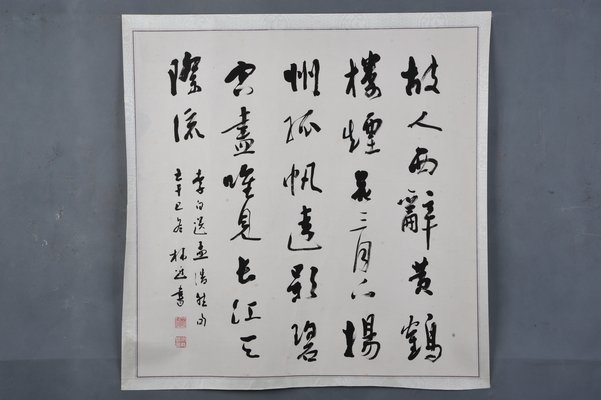 故人西辭黄鶴
樓煙花三月下揚
州孤帆遠影碧
空盡唯見長江天
際流
李白送孟浩然
書